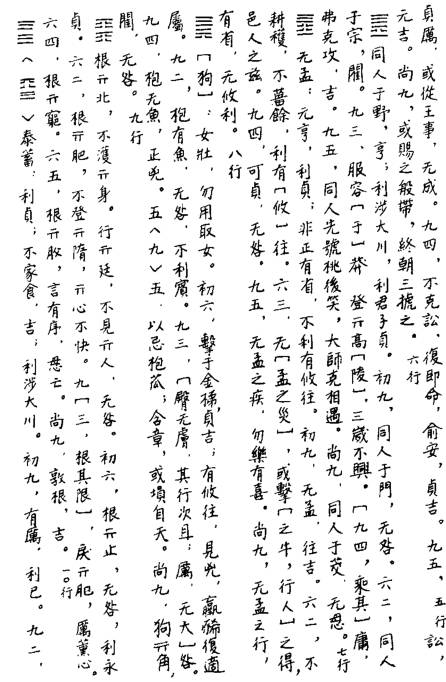 貞厲，或從王事，无成。九四，不克訟，復即命，俞安，貞吉。九五，五行訟，
元吉。尚九，或賜之般帶，終朝三摅之。六行
䷌同人于野，亨；利涉大川，利君子貞。初九，同人于門，无咎。六二，同人
于宗，閵。九三，服容〔于〕莽，登亓高〔陵〕，三歲不興。〔九四，乘其〕庸，
弗克攻，吉。九五，同人先號桃後笑，大師克相遇。尚九，同人于茭，无悶。七行
䷘无孟：元亨，利貞；非正有眚，不利有攸往。初九，无孟，往吉。六二，不
耕穫，不菑餘，利有〔攸〕往。六三，无〔孟之災〕，或擊〔之牛，行人〕之得，
邑人之茲。九四，可貞，无咎。九五，无孟之疾，勿樂有喜。尚九，无孟之行，
有眚，无攸利。八行
䷫〔狗〕：女壯，勿用取女。初六，擊于金梯，貞吉；有攸往，見兇，羸豨復適
屬。九二，枹有魚，无咎，不利賓。九三，〔臀无膚，其行次且；厲，无大〕咎。
九四，枹无魚，正兇。五〈九〉五，以忌枹苽；含章，或塤自天。尚九，狗亓角，
閵，无咎。九行
䷳根亓北，不濩亓身。行亓廷，不見亓人，无咎。初六，根亓止，无咎，利永
貞。六二，根亓肥，不登亓隋，亓心不快。九〔三，根其限〕，戾亓肥，厲薰心。
六四，根亓躳。六五，根亓胶，言有序，悬亡。尚九，敦根，吉。一〇行
䷌〈䷙〉泰蓄：利貞；不家食，吉；利涉大川。初九，有厲，利巳。九二，